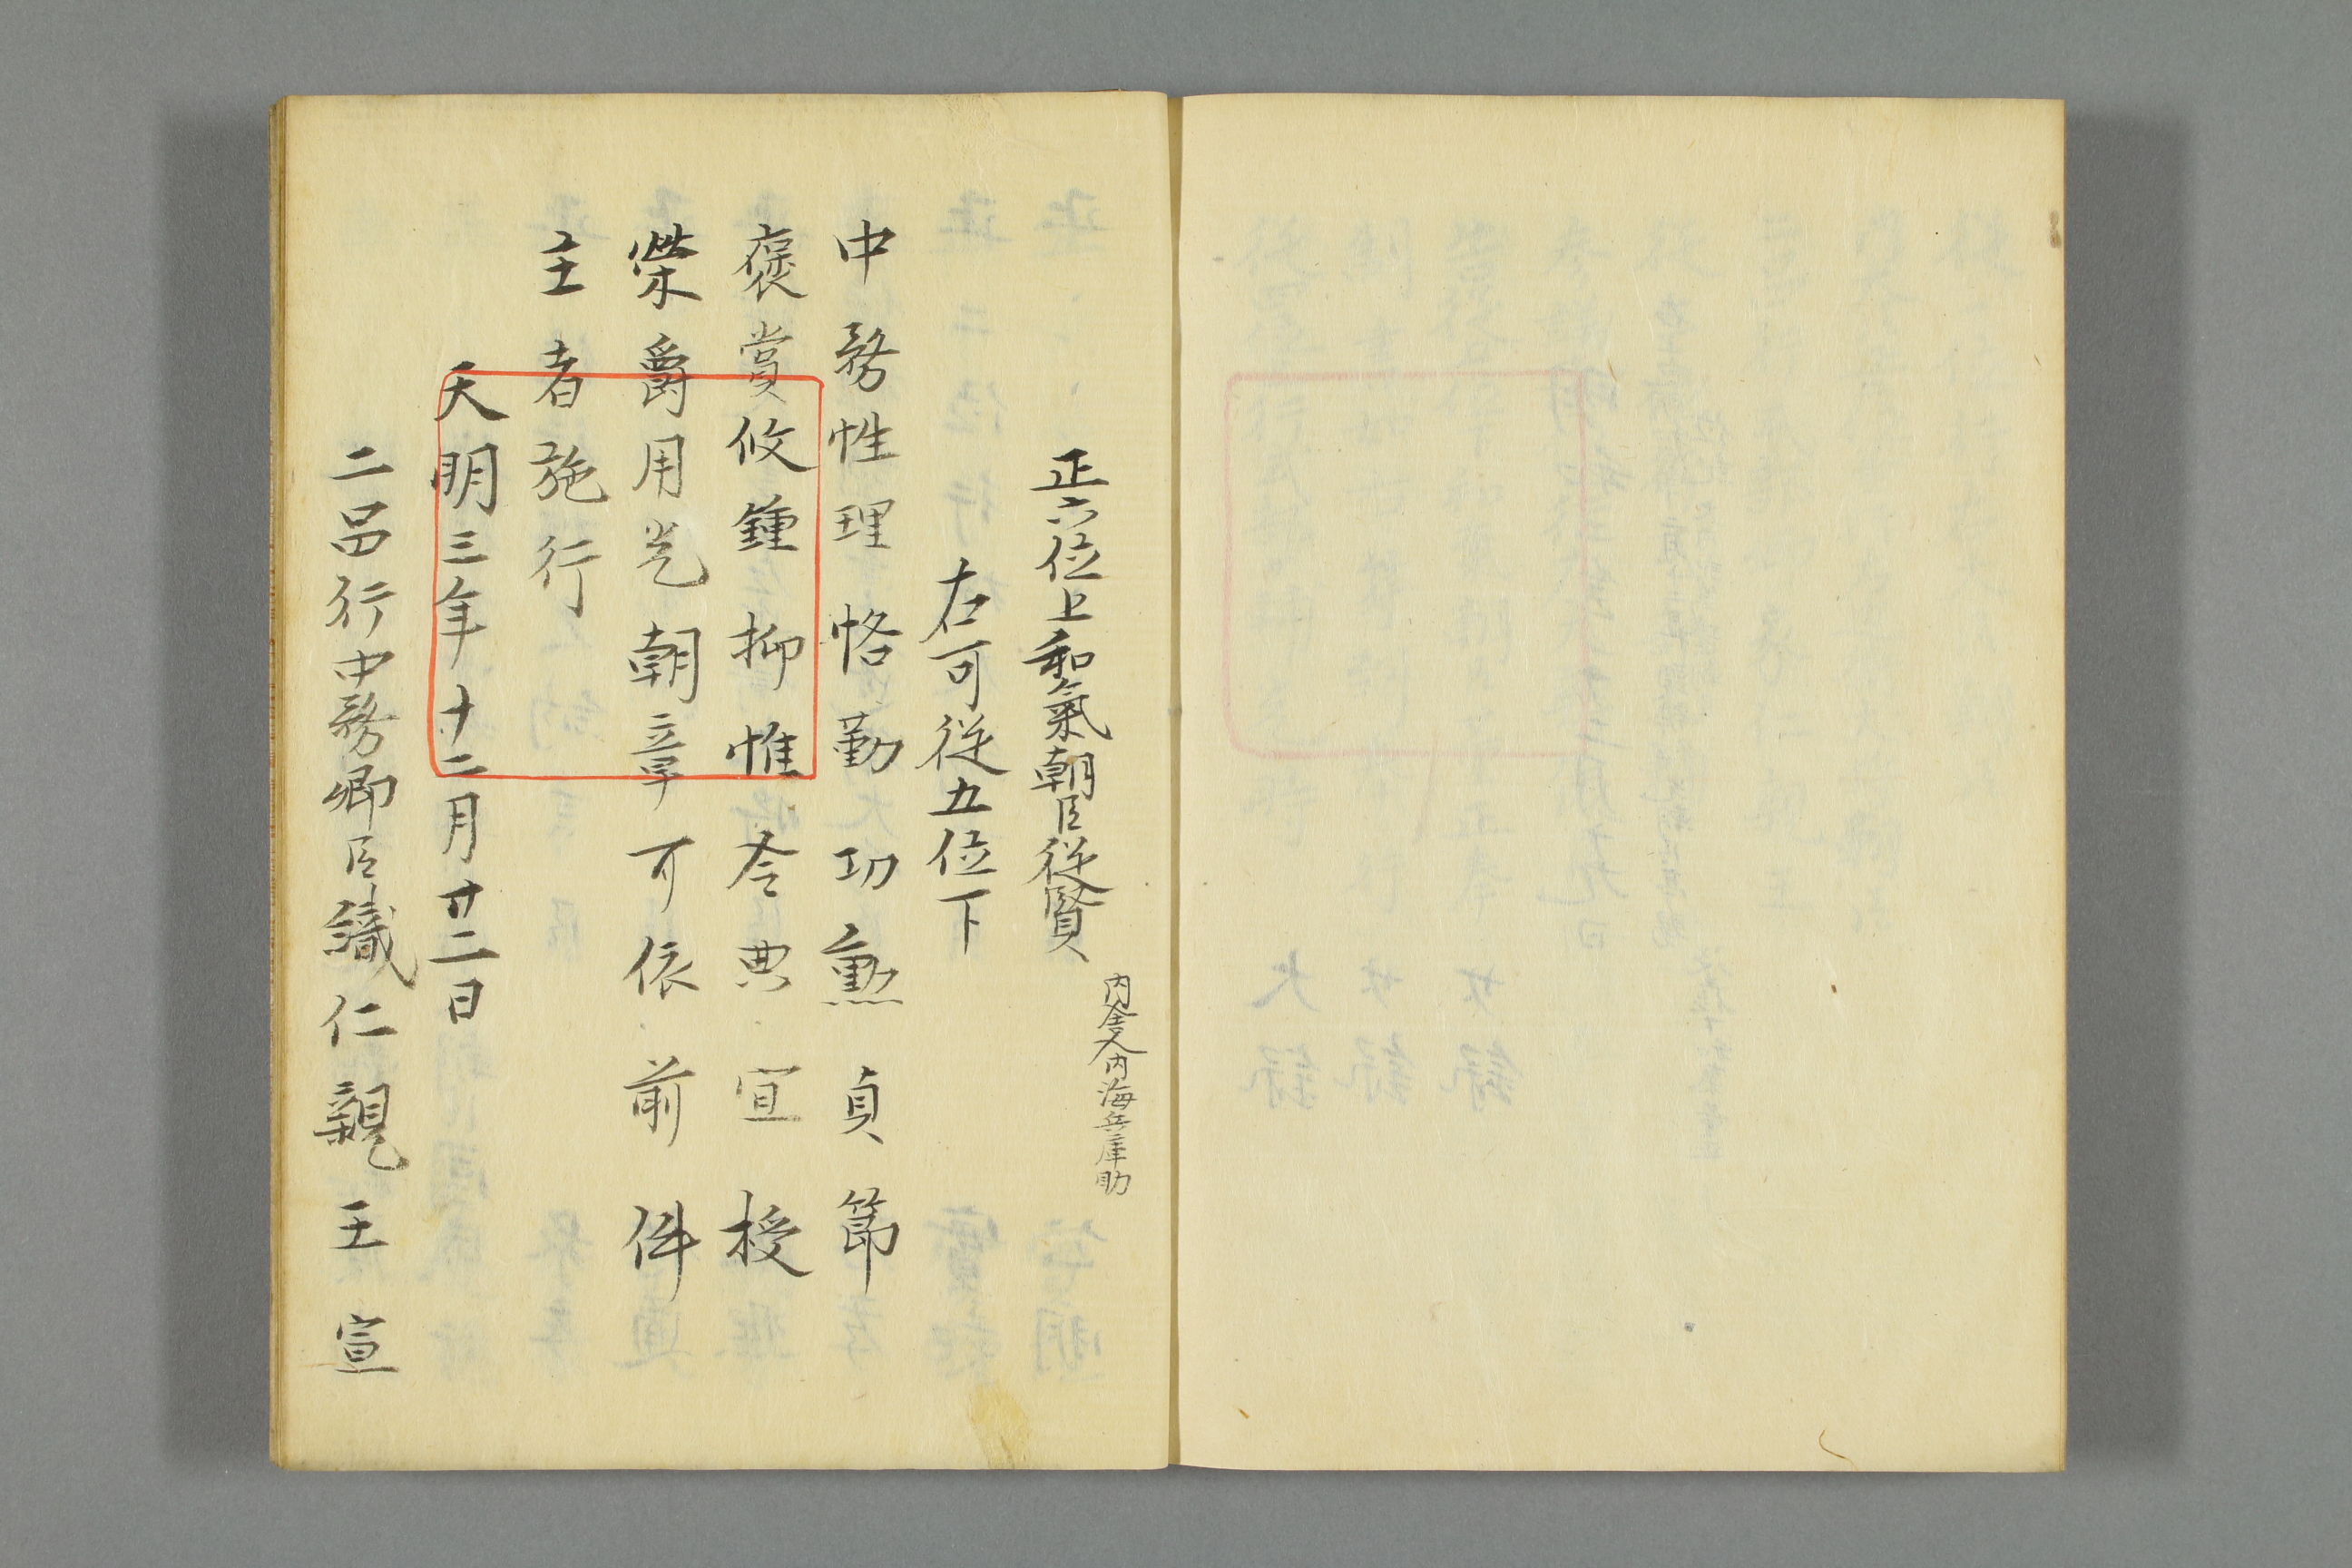 正六位上和氣朝臣從賢
内舎人内海兵庫助
右可從五位下
中務性理恪勤大功勲貞節
褒賞攸鍾抑惟令典宜授
榮爵用光朝章可依前件
主者施行
天明三年十二月廿二日
二品行中務卿臣織仁親王宣